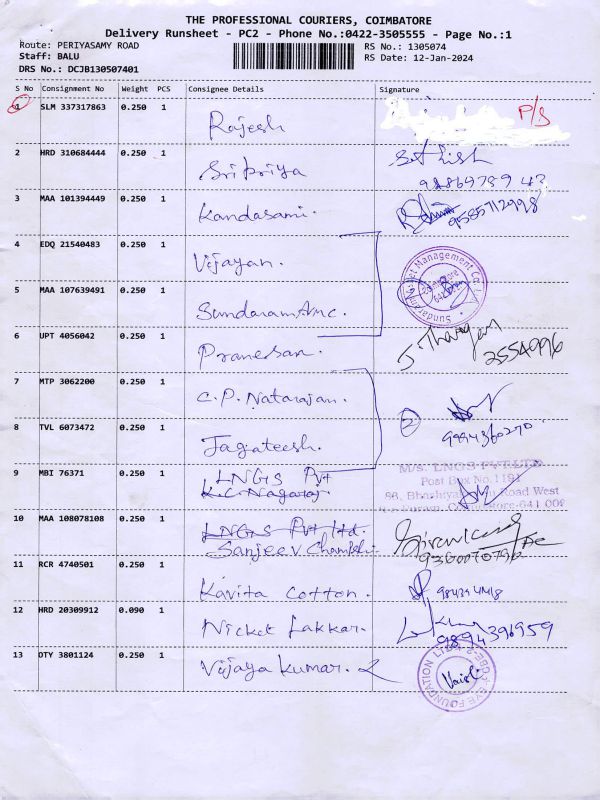 THE PROFESSIONAL COURIERS, COIMBATORE
Delivery Runsheet - PC2 - Phone No.:0422-3505555 - Page No.:1
Route: PERIYASAMY ROAD
RS No.: 1305074
Staff: BALU
RS Date: 12-Jan-2024
DRS No.: DCJB130507401
S No Consignment No Weight PCS Consignee Details Signature
1 SLM 337317863 0.250 1 P/S
Rajesh
2 HRD 310684444 0.250 1 Sathish
Sripriya
3 MAA 101394449 0.250 1
Kandasami. 9585712998
4 EDQ 21540483 0.250 1
Vijayan.
5 MAA 107639491 0.250 1
Sundaram Amc.
6 UPT 4056042 0.250 1
Pranesan. 2554996
7 MTP 3062200 0.250 1
C.P. Natarajan.
8 TVL 6073472 0.250 1 2
Jagateesh. 9994360270
9 MBI 76371 0.250 1 LNGS Pvt M/S. LNGS PVT.LTD
K.C. Nagaraj Post Box No.1191
Road West
10 MAA 108078108 0.250 1 LNGS Pvt Ltd.
Sanjeev 9360070796
11 RCR 4740501 0.250 1
Kavita Cotton.
12 HRD 20309912 0.090 1
Nicket Lakkar. 9894396959
13 OTY 3801124 0.250 1
Vijaya Kumar.